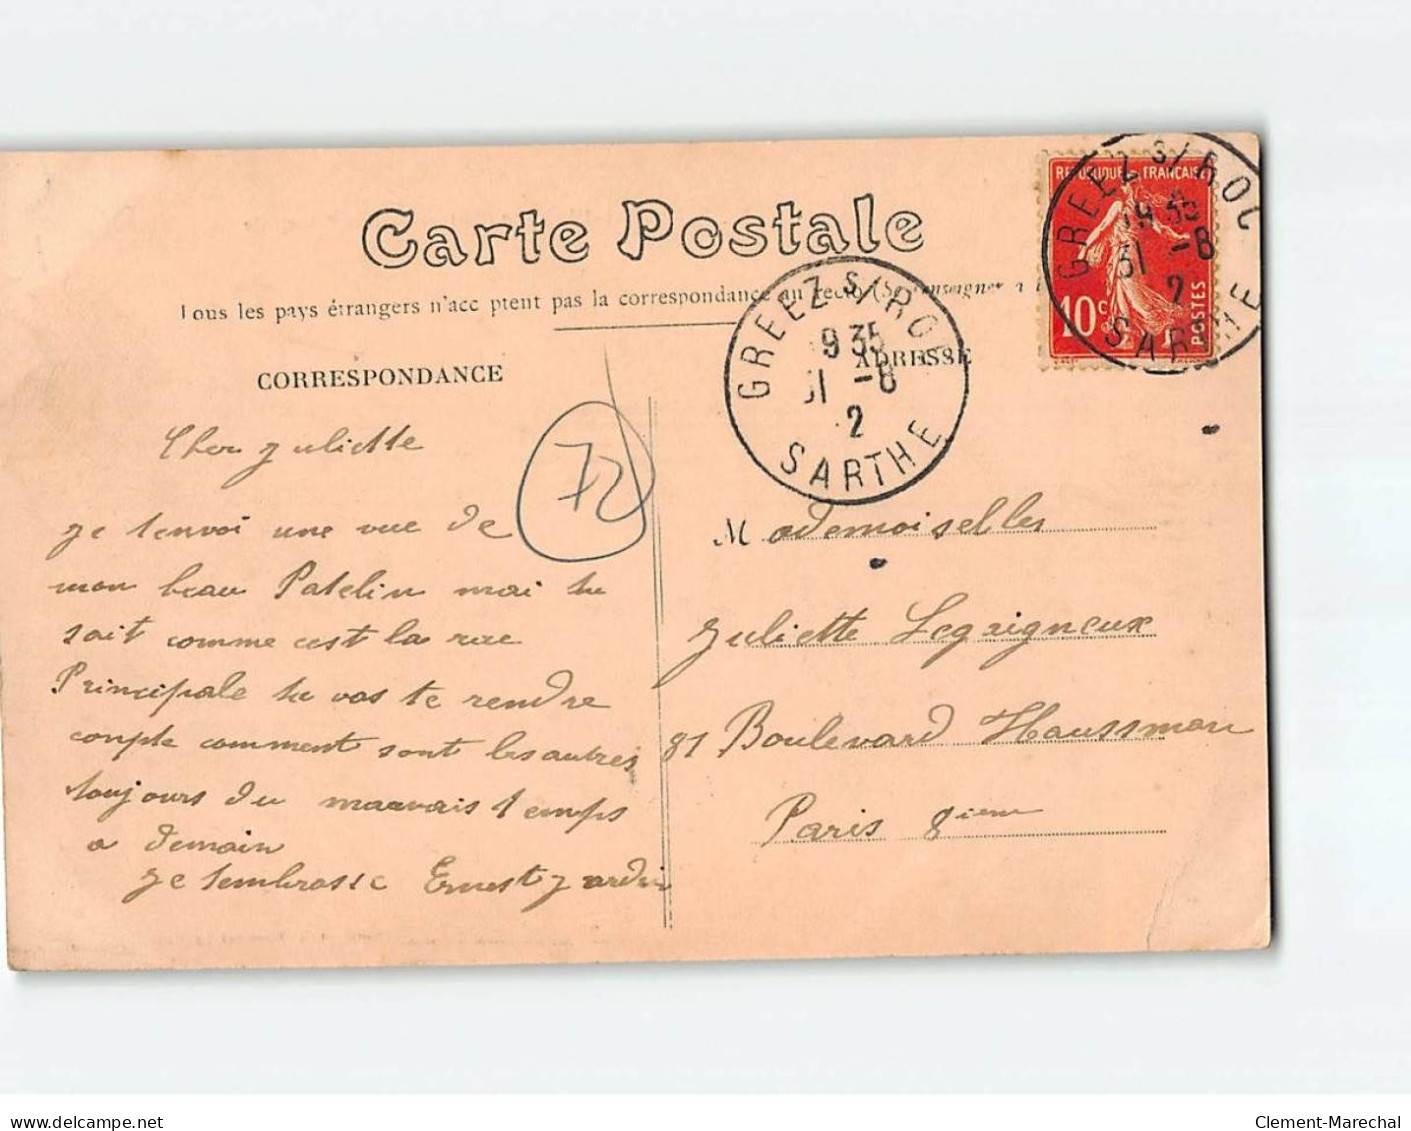 Carte Postale
Tous les pays étrangers n'acceptent pas la correspondance au recto (Se renseigner à
CORRESPONDANCE
ADRESSE
REPUBLIQUE FRANÇAISE
10 c
POSTES
GREEZ S/ ROC
19 35
31 -8
2
SARTHE
GREEZ S/ RO
9 35
31 -8
2
SARTHE
72
Cher Juliette
Je tenvoi une vue de
mon beau Patelin mai tu
sait comme cest la rue
Principale tu vas te rendre
conpte comment sont les autres
toujours du mauvais temps
a demain
Je tembrasse Ernest Jardin
Mademoiselles
Juliette Legaigneux
81 Boulevard Haussman
Paris 8ieme
delcampe.net
Clement-Marechal